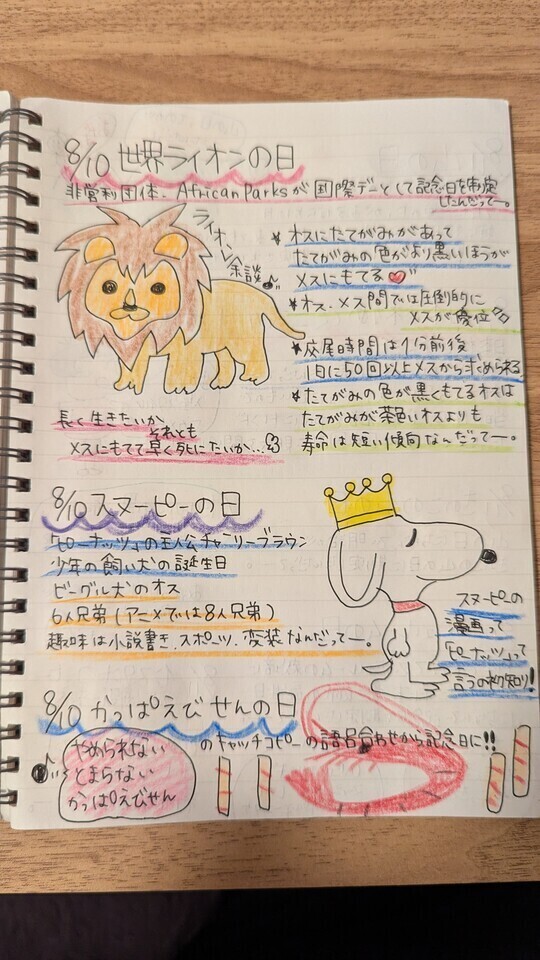 8/10 世界ライオンの日
非営利団体、African Parksが国際デーとして記念日を制定
したんだってー。
ライオン余談
* オスにたてがみがあって
たてがみの色がより黒いほうが
メスにもてる
* オス、メス間では圧倒的に
メスが優位
* 交尾時間は1分前後
1日に50回以上メスから求められる
* たてがみの色が黒くもてるオスは
たてがみが茶色いオスよりも
寿命は短い傾向なんだってー。
長く生きたいか
それとも
メスにもてて早く死にたいか…
8/10 スヌーピーの日
「ピーナッツ」の主人公チャーリーブラウン
少年の飼い犬の誕生日
ビーグル犬のオス
6人兄弟(アニメでは8人兄弟)
趣味は小説書き、スポーツ、変装なんだってー。
スヌーピーの
漫画って
「ピーナッツ」って
言うの初知り!
8/10 かっぱえびせんの日
やめられない
とまらない
かっぱえびせん
のキャッチコピーの語呂合わせから記念日に!!